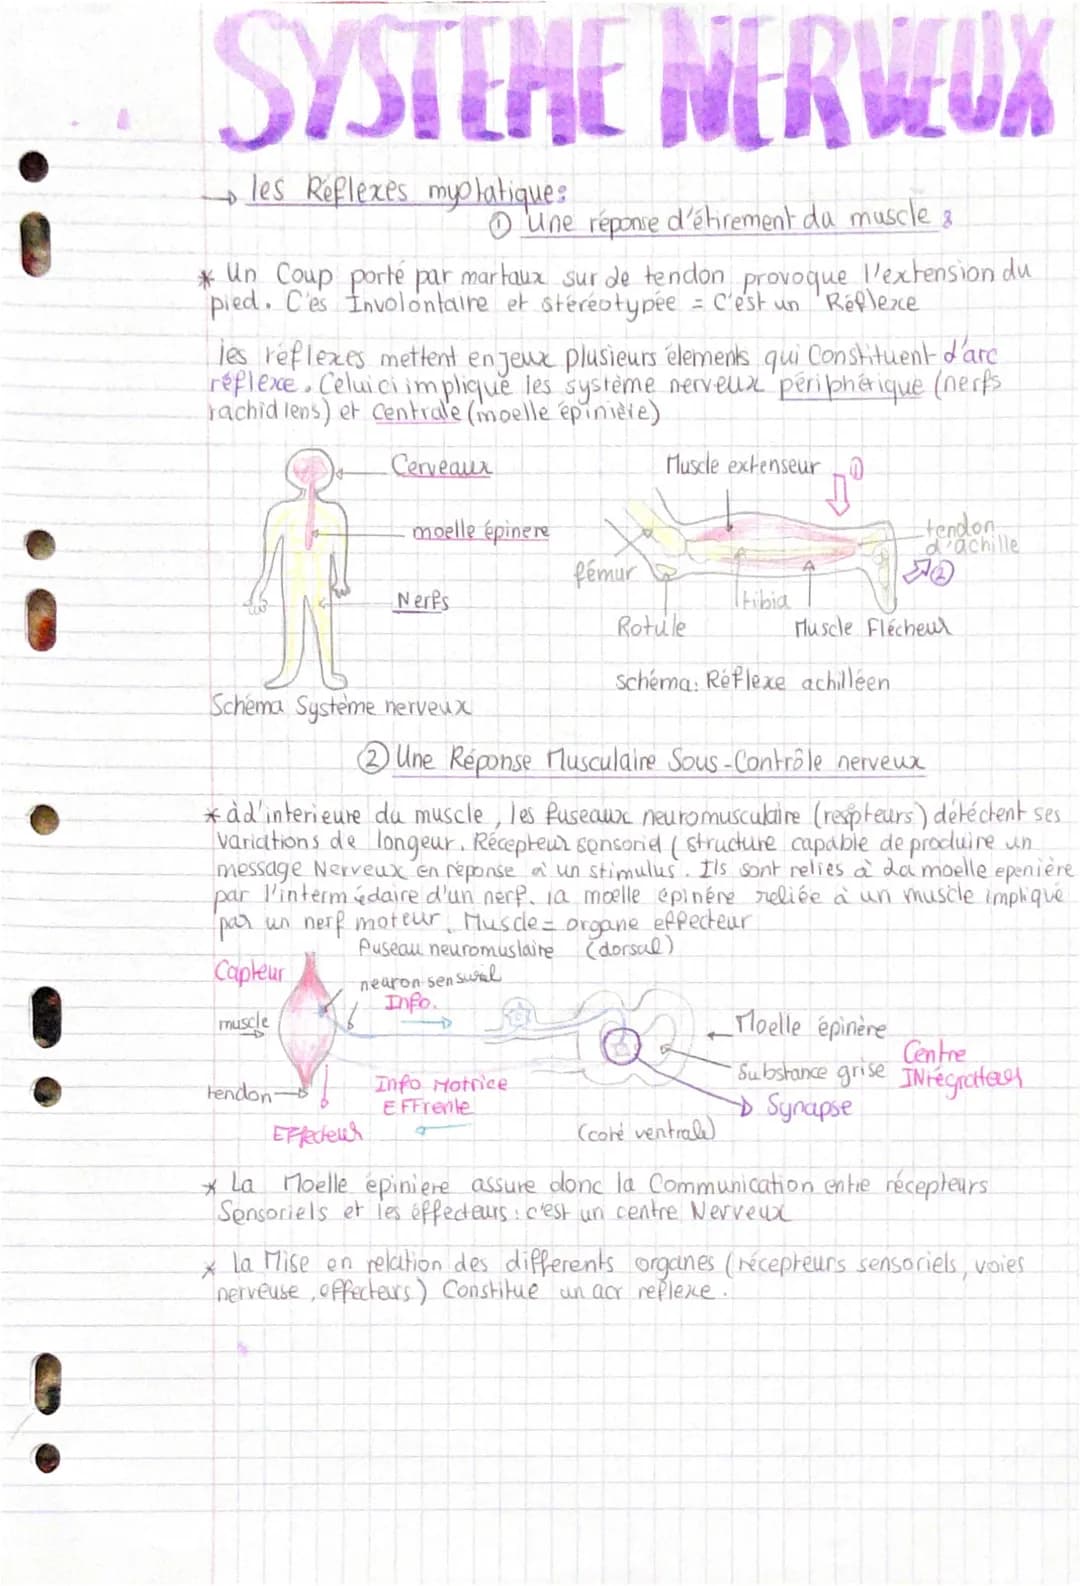 SYSTEME NERVEUX
→ les Réflexes myotatique:
① Une réponse d'étirement du muscle :
* Un Coup porté par martaux sur de tendon provoque l'extension du
pied. C'es Involontaire et stéréotypée = C'est un Réflexe
les réflexes mettent en jeux plusieurs élements qui Constituent d'arc
réflexe. Celui ci implique les système nerveux périphérique (nerfs
rachidiens) et Centrale (moelle épinière)
Cerveaux
moelle épinere
Nerfs
Schéma Système nerveux
Muscle extenseur
①
tendon
d'achille
②
fémur
tibia
Rotule
Muscle Flécheur
schéma: Réflexe achilléen
② Une Réponse Musculaire Sous-Contrôle nerveux
* à d'interieure du muscle, les fuseaux neuromusculaire (respteurs) détéctent ses
variations de longeur. Récepteur sensoriel (structure capable de produire un
message Nerveux en réponse à un stimulus. Ils sont relies à la moelle epenière
par l'intermédaire d'un nerf. la moelle épinére reliée à un muscle impliqué
par un nerf moteur. Muscle = organe effecteur
Fuseau neuromuslaire (dorsal)
Capteur
nearon sensurial
Info.
muscle
Moelle épinère
Centre
INtégrateur
Substance grise
tendon
Info Motrice
EFFrente
Synapse
EFfecteur
(coté ventrale)
* La Moelle épiniere assure donc la Communication entre récepteurs
Sensoriels et les éffecteurs : c'est un centre Nerveux
* la Mise en relation des differents organes (récepteurs sensoriels, voies
nerveuse, effecteurs) Constitue un acr reflexe.